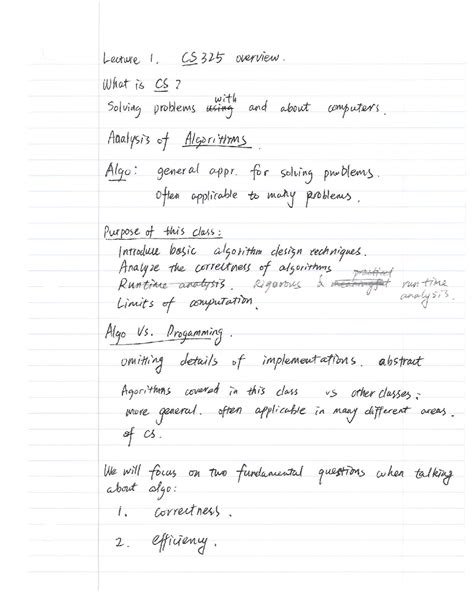 Lecture 1. CS 325 overview.
What is CS ?
with
Solving problems using and about computers.
Analysis of Algorithms
Algo: general appr. for solving problems.
Often applicable to many problems.
Purpose of this class:
Introduce basic algorithm design techniques.
Analyze the correctness of algorithms
practical
Runtime analysis. Rigorous & meaningful run time
analysis.
Limits of computation.
Algo Vs. Progamming.
omitting details of implementations. abstract
Agorithms covered in this class vs other classes:
more general. often applicable in many different areas.
of CS.
We will focus on two fundamental questions when talking
about algo:
1. correctness.
2. efficiency.